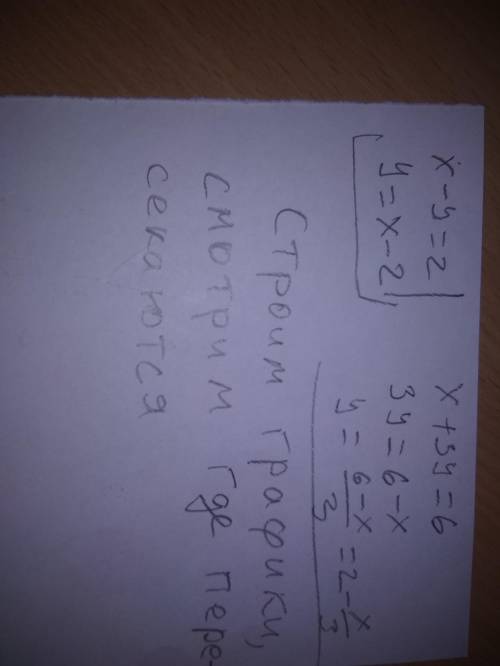 x - y = 2
y = x - 2
x + 3y = 6
3y = 6 - x
y = (6 - x)/3 = 2 - x/3
Строим графики,
смотрим где пере-
секаются